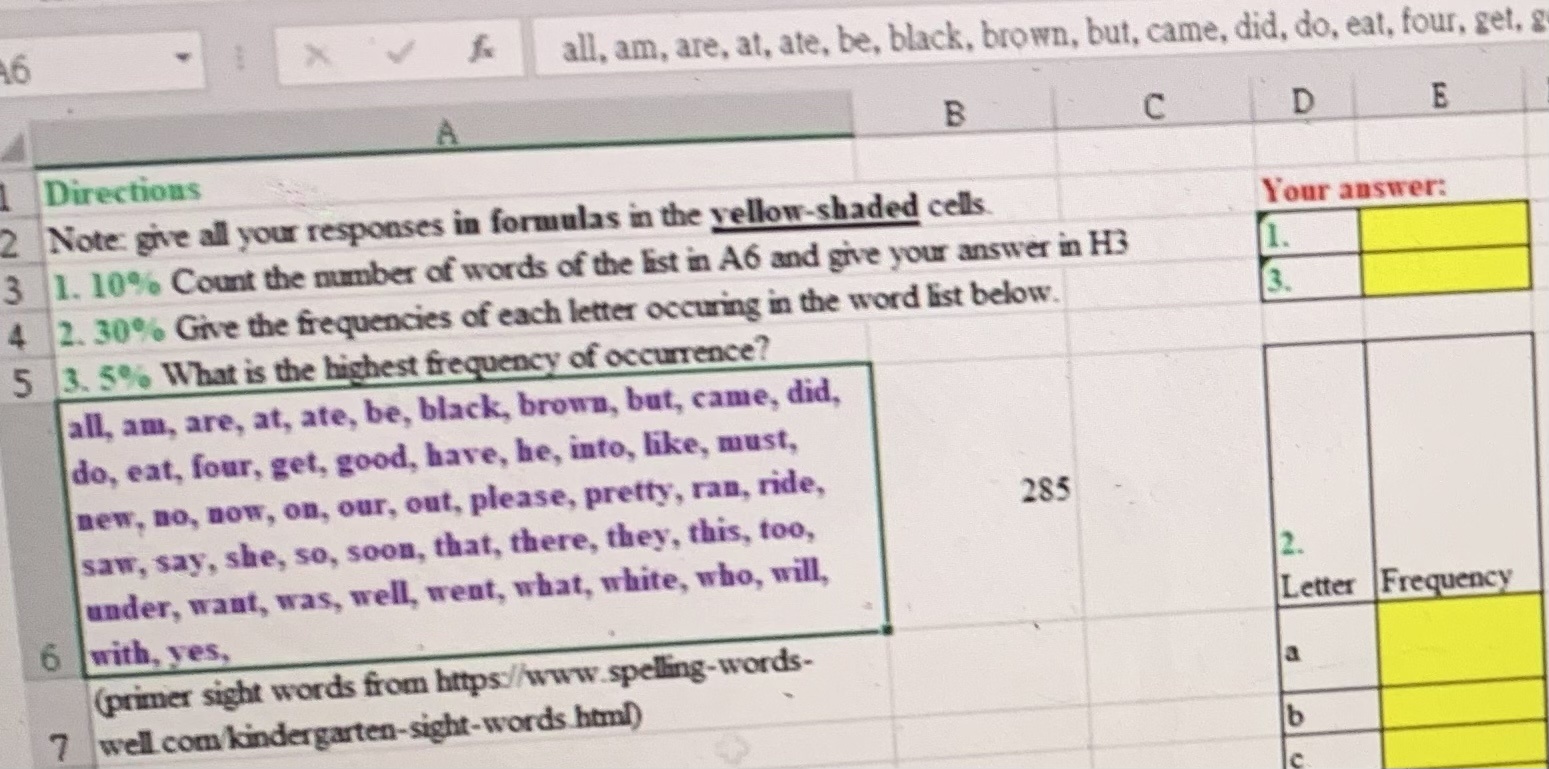 A6 fx all, am, are, at, ate, be, black, brown, but, came, did, do, eat, four, get, g
A B C D E
1 Directions Your answer:
2 Note: give all your responses in formulas in the yellow-shaded cells. 1.
3 1. 10% Count the number of words of the list in A6 and give your answer in H3 3.
4 2. 30% Give the frequencies of each letter occuring in the word list below.
5 3. 5% What is the highest frequency of occurrence?
all, am, are, at, ate, be, black, brown, but, came, did,
do, eat, four, get, good, have, he, into, like, must,
new, no, now, on, our, out, please, pretty, ran, ride,
285
saw, say, she, so, soon, that, there, they, this, too,
2.
under, want, was, well, went, what, white, who, will,
Letter Frequency
6 with, yes,
a
(primer sight words from https://www.spelling-words-
7 well.com/kindergarten-sight-words.html)
b
c